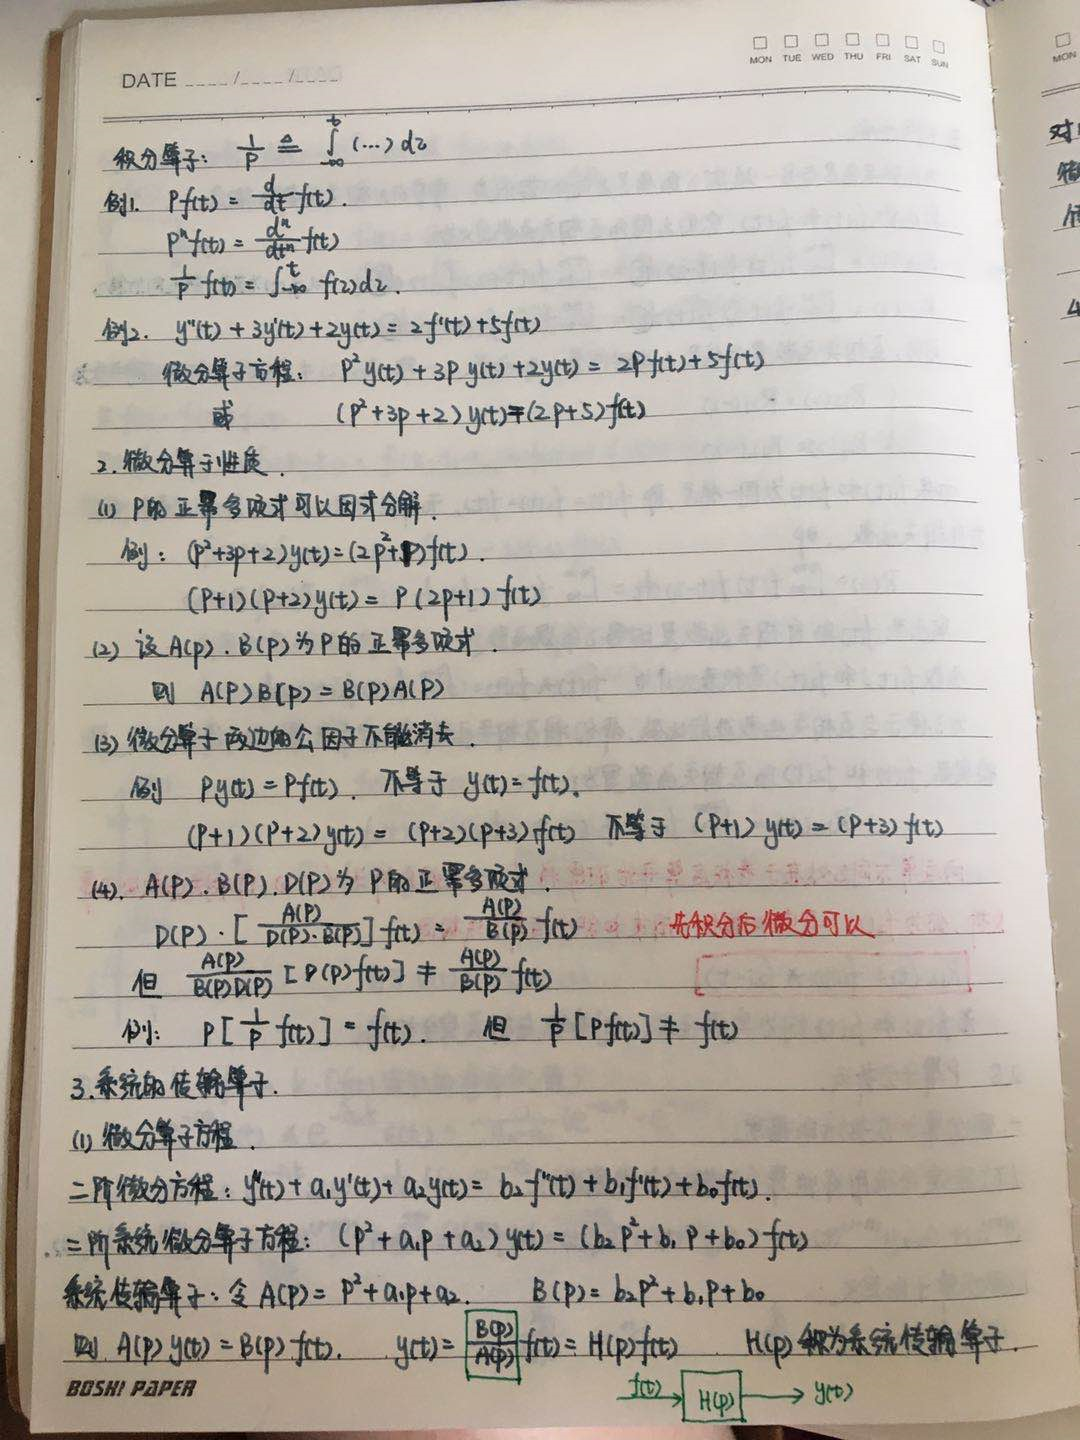 DATE ____/____/____
MON TUE WED THU FRI SAT SUN
积分算子: 1/P ≜ ∫_{-∞}^{t} (...) dτ
例1. Pf(t) = d/dt f(t).
P^n f(t) = d^n/dt^n f(t)
1/P f(t) = ∫_{-∞}^{t} f(τ)dτ.
例2. y''(t) + 3y'(t) + 2y(t) = 2f'(t) + 5f(t)
微分算子方程: P²y(t) + 3P y(t) + 2y(t) = 2Pf(t) + 5f(t)
或 (P²+3p+2) y(t) = (2P+5) f(t)
2. 微分算子性质.
(1) P的正幂多项式可以因式分解.
例: (P²+3p+2)y(t) = (2p²+P)f(t).
(P+1)(P+2)y(t) = P(2p+1)f(t)
(2) 设A(p).B(p)为P的正幂多项式.
则 A(P)B(P) = B(P)A(P)
(3) 微分算子两边的公因子不能消去.
例 Py(t) = Pf(t). 不等于 y(t) = f(t).
(P+1)(P+2)y(t) = (P+2)(P+3)f(t) 不等于 (P+1)y(t) = (P+3)f(t)
(4). A(P).B(P).D(P)为P的正幂多项式.
D(P)·[A(P)/D(P)·B(P)] f(t) = A(P)/B(P) f(t) 先积分后微分可以
但 A(P)/B(P)D(P) [D(P)f(t)] ≠ A(P)/B(P) f(t)
例: P[1/P f(t)] = f(t). 但 1/P [Pf(t)] ≠ f(t)
3. 系统的传输算子.
(1) 微分算子方程.
二阶微分方程: y''(t) + a₁y'(t) + a₂y(t) = b₂f''(t) + b₁f'(t) + b₀f(t).
二阶系统微分算子方程: (P² + a₁p + a₂) y(t) = (b₂P² + b₁P + b₀) f(t)
系统传输算子: 令A(P) = P² + a₁p + a₂. B(P) = b₂P² + b₁P + b₀
则 A(P)y(t) = B(P)f(t). y(t) = B(P)/A(P) f(t) = H(p)f(t) H(p)称为系统传输算子.
f(t) H(p) y(t)
BOSHI PAPER
MON
对